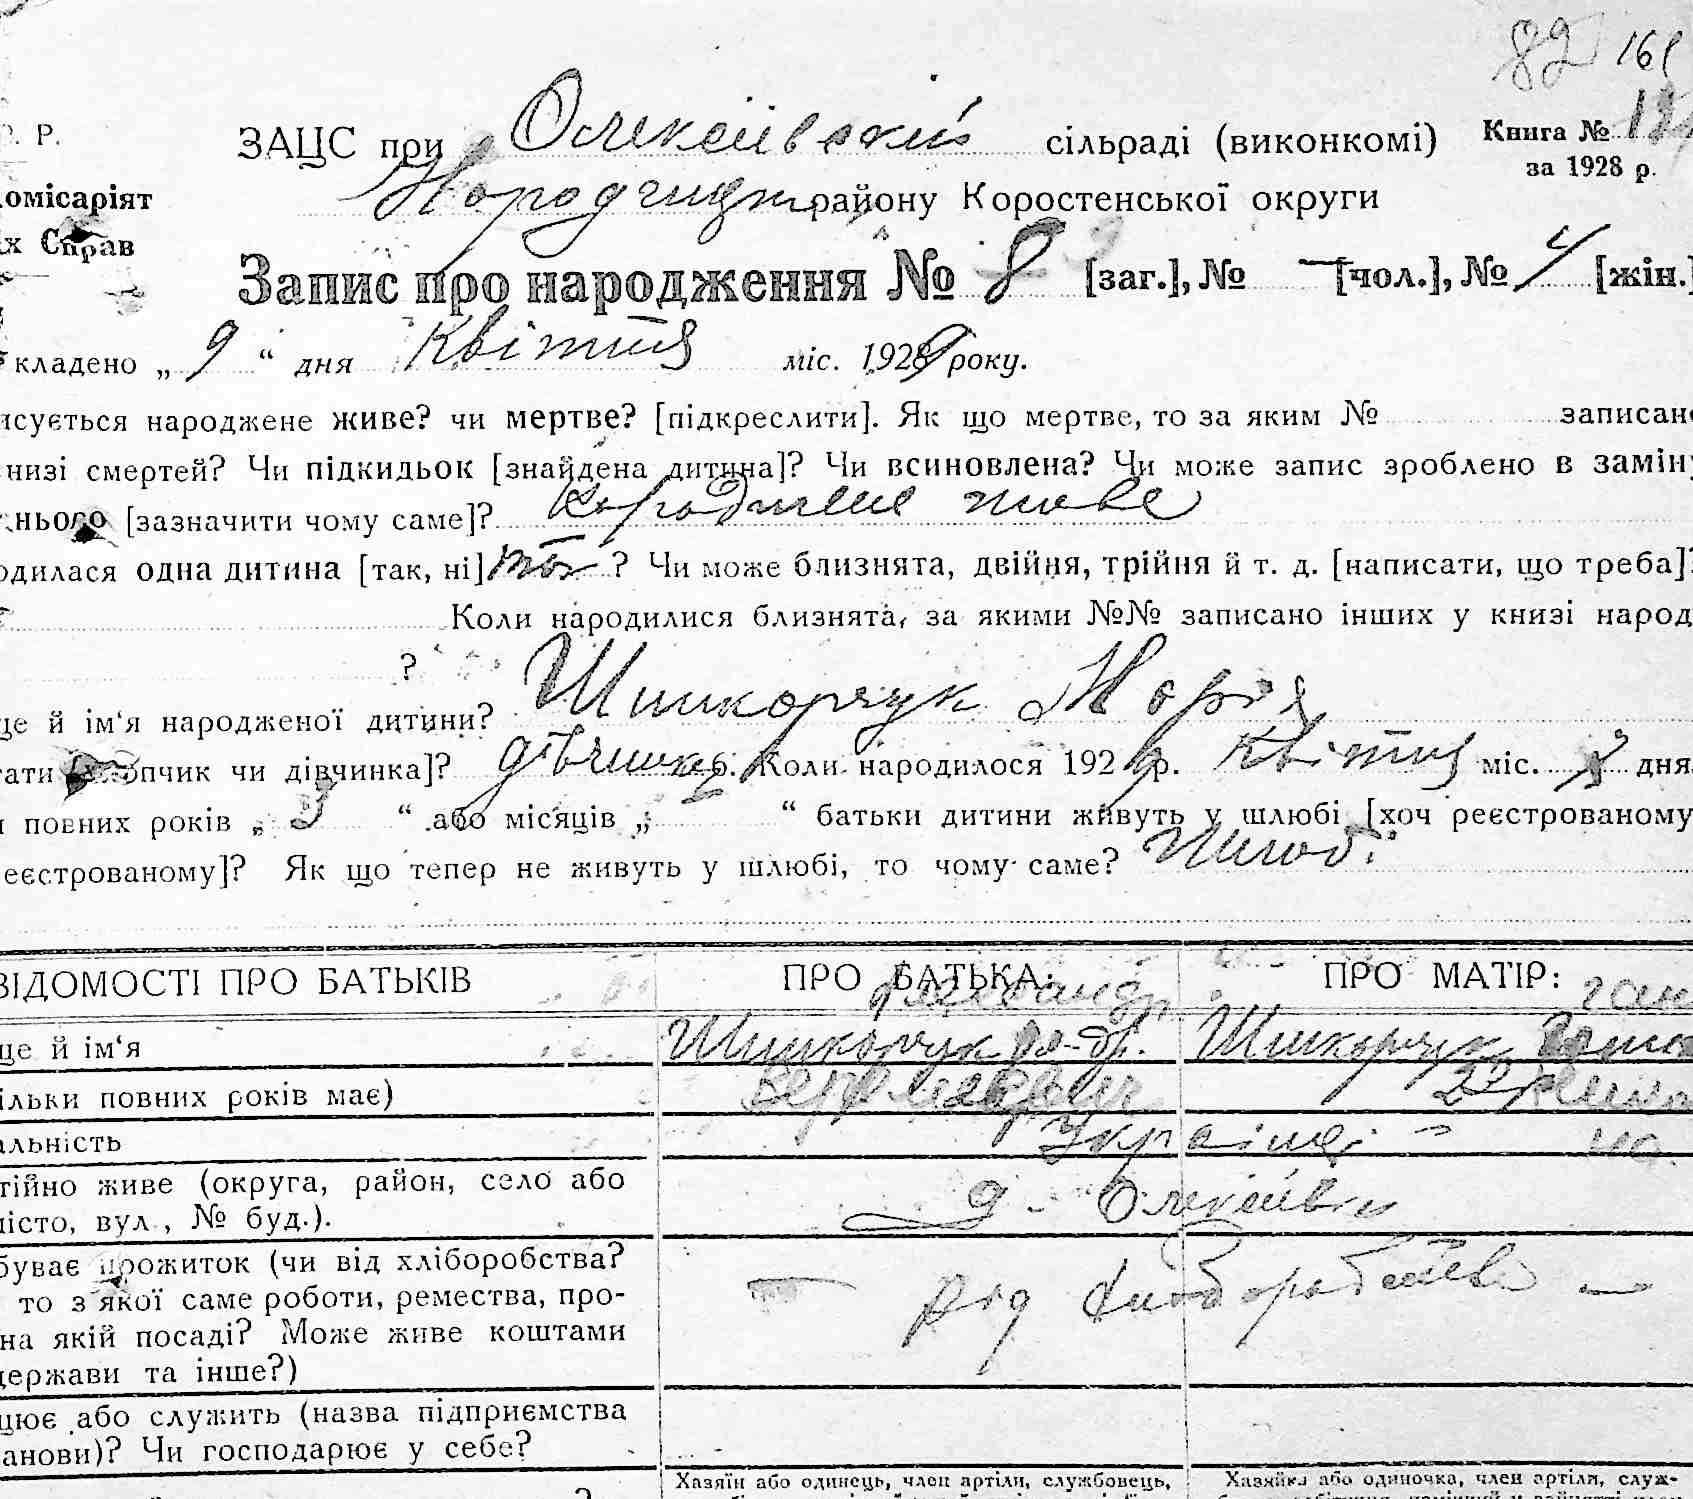 82 161
Р. Р.
ЗАЦС при Олексіївській сільраді (виконкомі) Книга №
за 1928 р.
омісаріят
Народицьк району Коростенської округи
х Справ
Запис про народження № 8 [заг.], № — [чол.], № 4 [жін.]
кладено „ 9 “ дня Квітня міс. 1929 року.
исується народжене живе? чи мертве? [підкреслити]. Як що мертве, то за яким № записан
низі смертей? Чи підкидьок [знайдена дитина]? Чи всиновлена? Чи може запис зроблено в замін
нього [зазначити чому саме]? народжене живе
одилася одна дитина [так, ні] так ? Чи може близнята, двійня, трійня й т. д. [написати, що треба]?
Коли народилися близнята, за якими №№ записано інших у книзі народ
?
ще й ім‘я народженої дитини? Шишкорчук Марія
тати [хлопчик чи дівчинка]? дівчинка. Коли народилося 1929 р. Квітня міс. 3 дня
и повних років „ 3 “ або місяців „ “ батьки дитини живуть у шлюбі [хоч реєстрованому
еєстрованому]? Як що тепер не живуть у шлюбі, то чому саме? Шлюб.
ВІДОМОСТІ ПРО БАТЬКІВ ПРО БАТЬКА: ПРО МАТІР:
ще й ім‘я Шишкорчук Шишкорчук
ільки повних років має) 22
альність Українці
тійно живе (округа, район, село або
місто, вул., № буд.). Олексіївка
буває прожиток (чи від хліборобства?
то з якої саме роботи, ремества, про-
на якій посаді? Може живе коштами
держави та інше?)
від хліборобства
цює або служить (назва підприємства
анови)? Чи господарює у себе?
Хазяїн або одинець, член артіли, службовець, Хазяйка або одиночка, член артіли, служ-